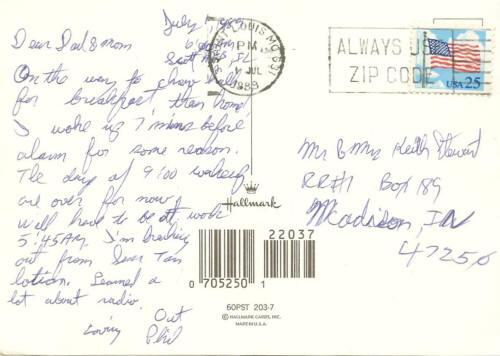 July, 1989
6:00 AM
Scott AFB, IL
Dear Dad & Mom
On the way to chow hall
for breakfast then home!
I woke up 7 mins before
alarm for some reason.
The day of 9:00 wakeup
are over for now
will have to be at work
5:45 AM. I'm breaking
out from Sear Tan
lotion. Learned a
lot about radio.
Out
Loving
Phil
SAINT LOUIS MO 631
PM
JUL
1989
ALWAYS US
ZIP CODE
USA 25
Mr & Mrs Keith Stewart
RR#1 Box 189
Madison, IN
47250
Hallmark
22037
0 705250 1
60PST 203-7
© HALLMARK CARDS, INC.
MADE IN U.S.A.